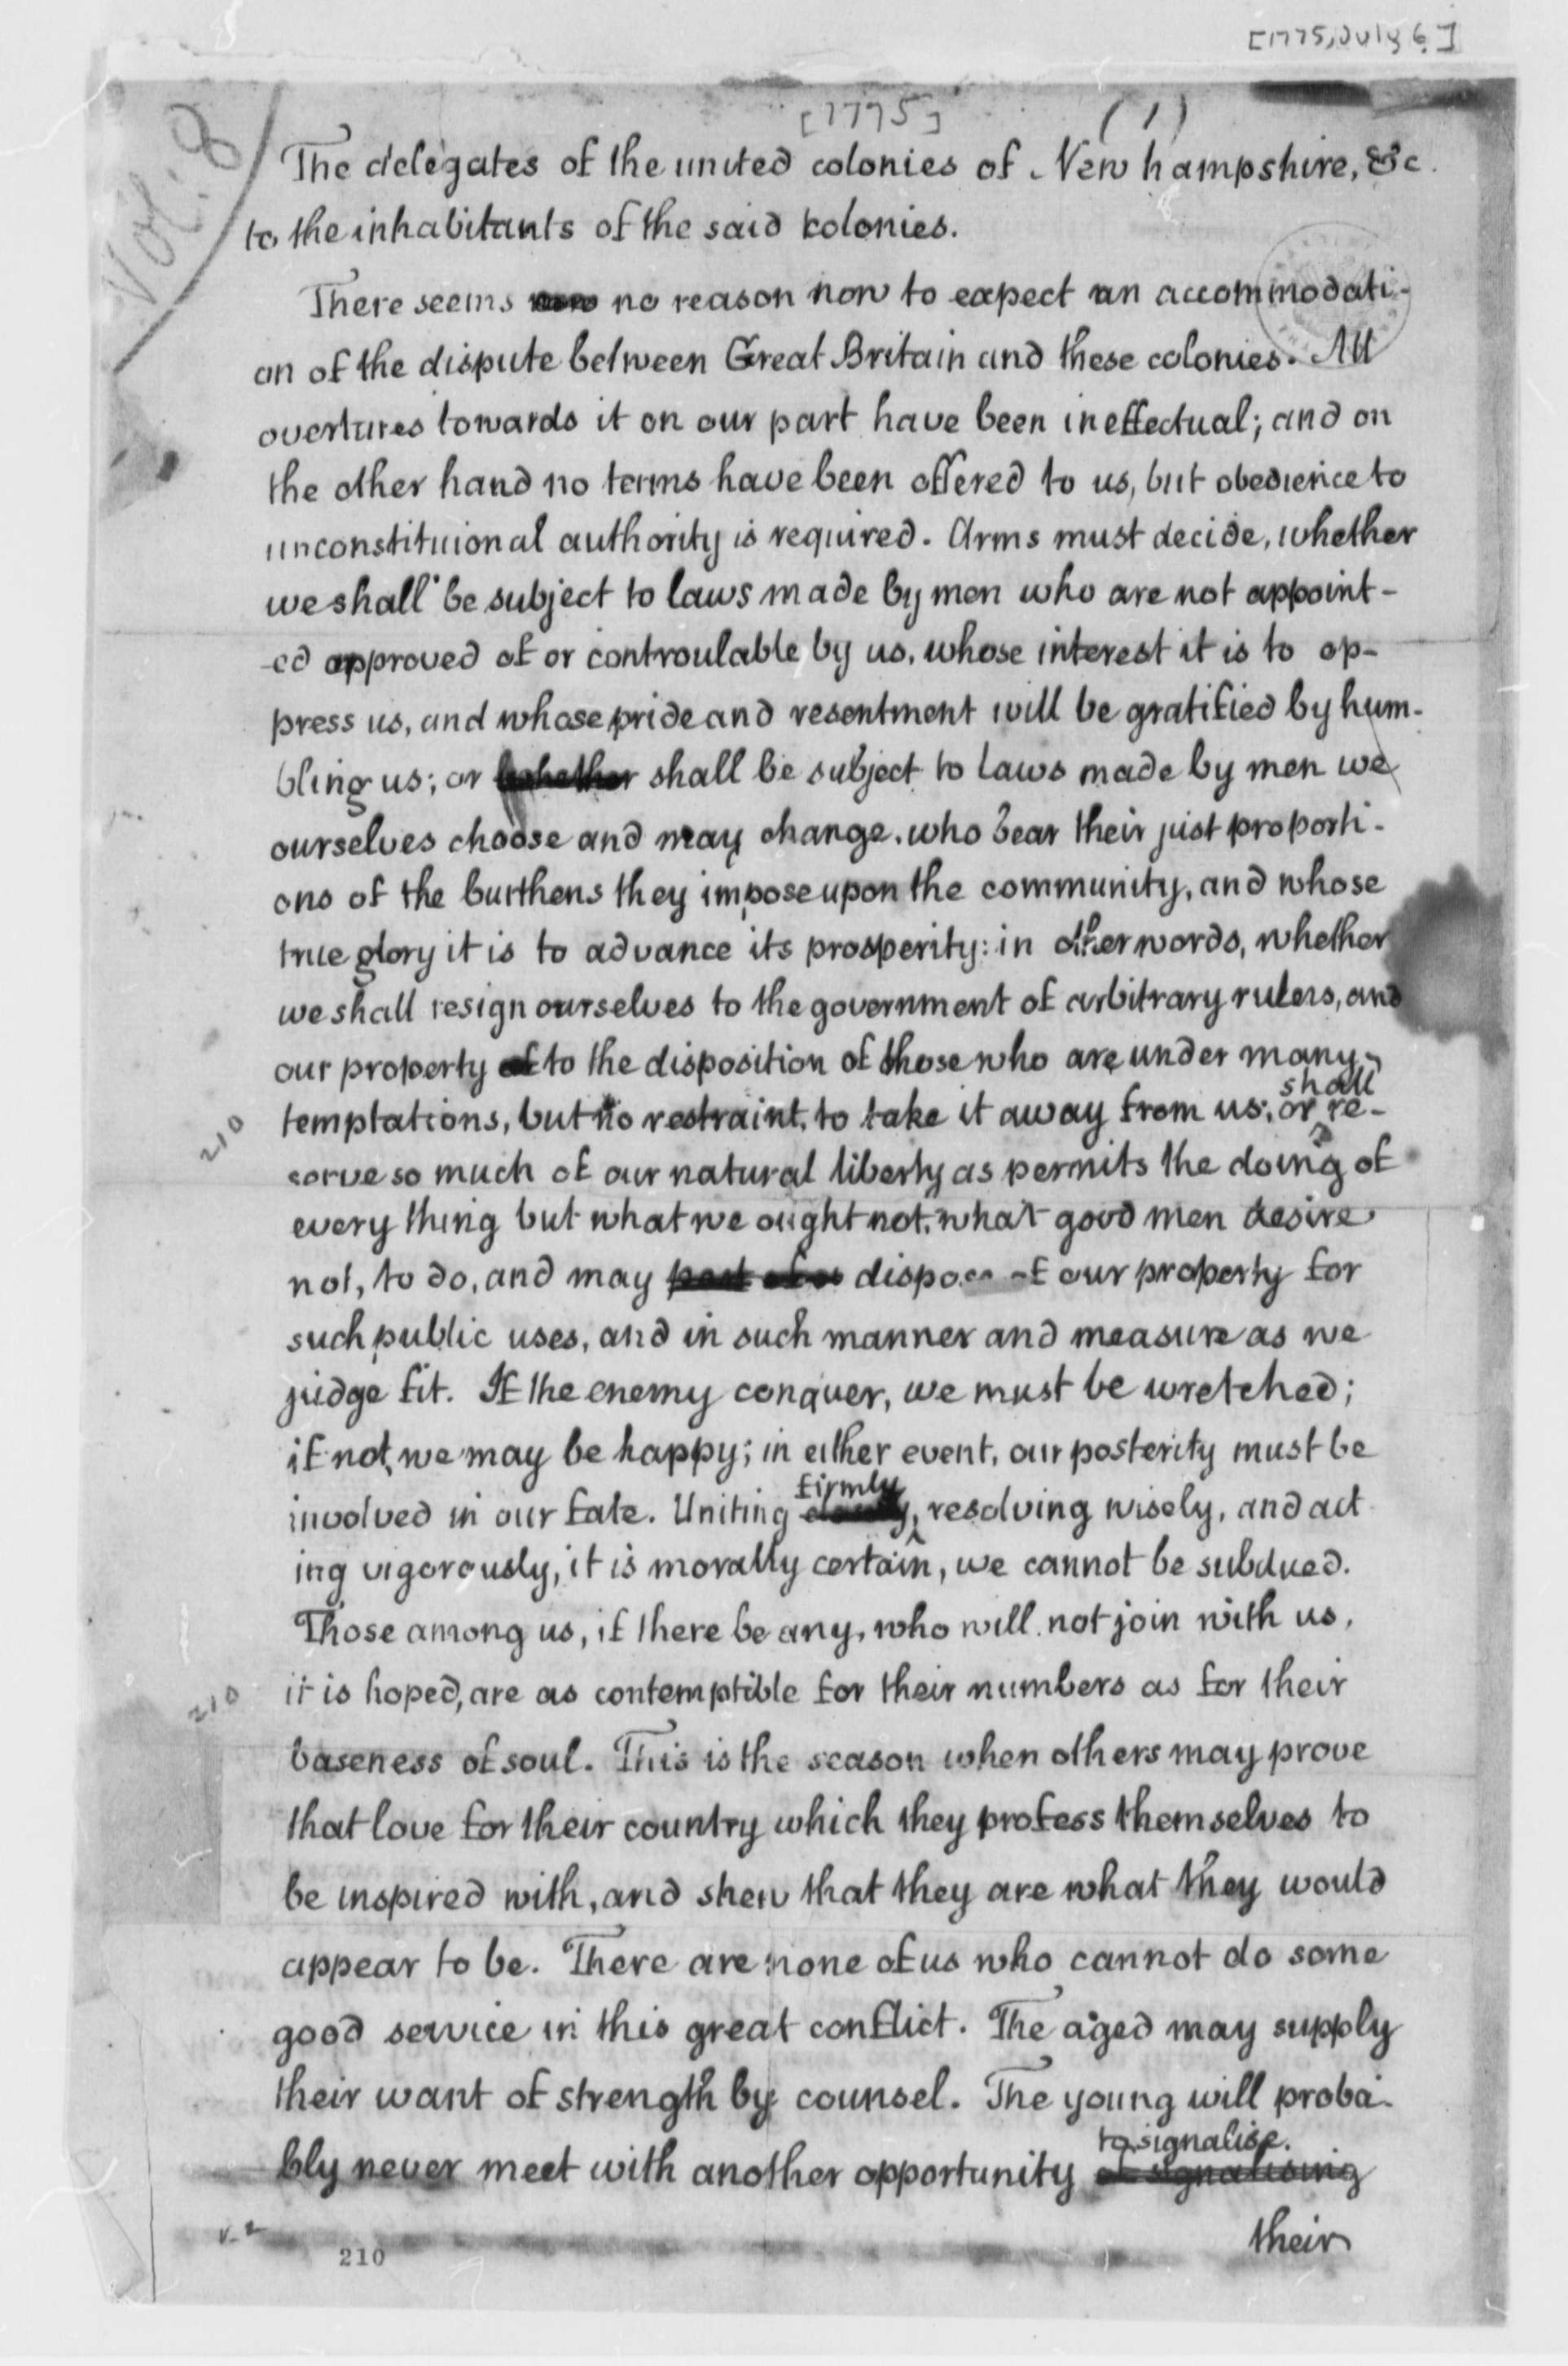 [1775, July 6.]
[1775] (1)
Vol: 8
The delegates of the united colonies of New hampshire, &c.
to the inhabitants of the said kolonies.
There seems no reason now to expect an accommodati-
on of the dispute between Great Britain and these colonies. All
overtures towards it on our part have been ineffectual; and on
the other hand no terms have been offered to us, but obedience to
unconstituional authority is required. Arms must decide, whether
we shall be subject to laws made by men who are not appoint-
-ed approved of or controulable by us, whose interest it is to op-
press us, and whose pride and resentment will be gratified by hum-
bling us; or whether shall be subject to laws made by men we
ourselves choose and may change, who bear their just proporti-
ons of the burthens they impose upon the community, and whose
true glory it is to advance its prosperity: in other words, whether
we shall resign ourselves to the government of arbitrary rulers, and
our property of to the disposition of those who are under many
shall
temptations, but no restraint, to take it away from us; or re-
210
serve so much of our natural liberty as permits the doing of
every thing but what we ought not, what good men desire
not, to do, and may dispose of our property for
such public uses, and in such manner and measure as we
judge fit. If the enemy conquer, we must be wretched;
if not, we may be happy; in either event, our posterity must be
firmly
involved in our fate. Uniting closely, resolving wisely, and act
ing vigorously, it is morally certain, we cannot be subdued.
Those among us, if there be any, who will not join with us,
210
it is hoped, are as contemptible for their numbers as for their
baseness of soul. This is the season when others may prove
that love for their country which they profess themselves to
be inspired with, and shew that they are what they would
appear to be. There are none of us who cannot do some
good service in this great conflict. The aged may supply
their want of strength by counsel. The young will proba-
to signalise.
bly never meet with another opportunity of signalising
their
210